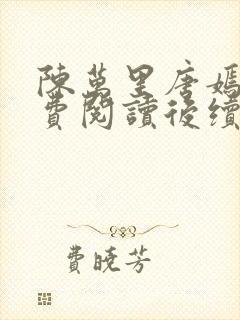 陳萬里唐嫣
費閱讀後續
費曉芳